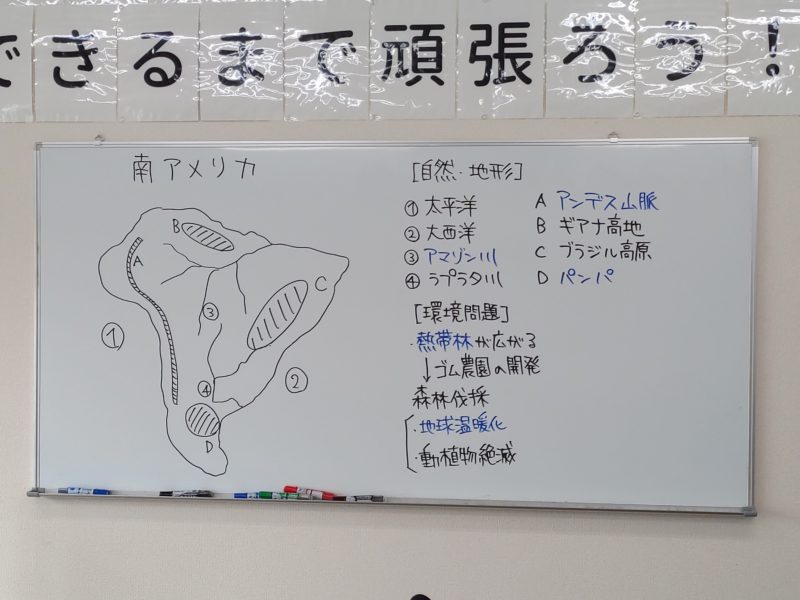 できるまで頑張ろう！
南アメリカ
B
A
C
①
③
②
④
D
[自然・地形]
① 太平洋
② 大西洋
③ アマゾン川
④ ラプラタ川
A アンデス山脈
B ギアナ高地
C ブラジル高原
D パンパ
[環境問題]
・熱帯林が広がる
↓ゴム農園の開発
森林伐採
・地球温暖化
・動植物絶滅